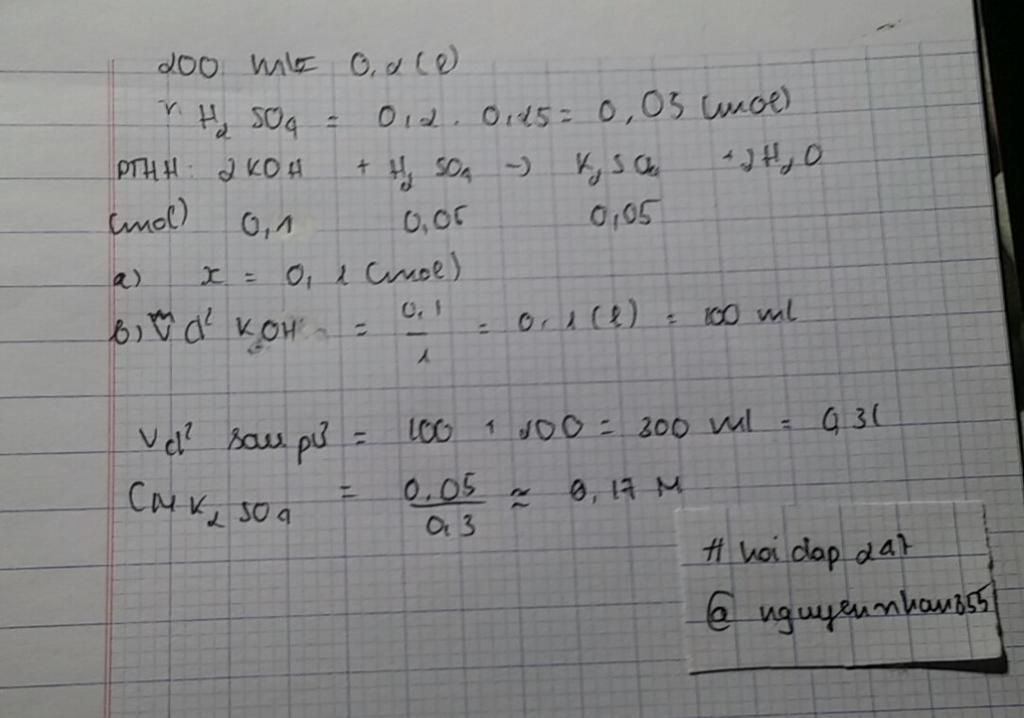 200 ml = 0,2 (l)
n H2SO4 = 0,2 . 0,25 = 0,05 (mol)
PTHH: 2KOH + H2SO4 -> K2SO4 + 2H2O
(mol) 0,1 0,05 0,05
a) x = 0,1 (mol)
b) V d² KOH = 0,1 / 1 = 0,1 (l) = 100 ml
V d² sau pứ = 100 + 200 = 300 ml = 0,3l
CM K2SO4 = 0,05 / 0,3 ≈ 0,17 M
# hoi dap 247
@ nguyennhan355